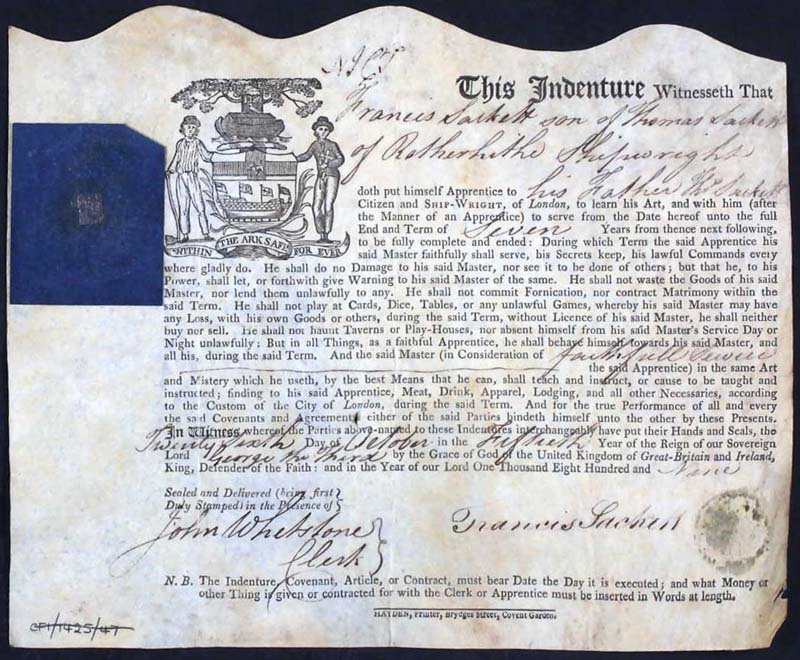 This Indenture Witnesseth That
Francis Sackett son of Thomas Sackett
of Rotherhithe Shipwright
doth put himself Apprentice to his Father Thos Sackett
Citizen and SHIP-WRIGHT, of London, to learn his Art, and with him (after
the Manner of an Apprentice) to serve from the Date hereof unto the full
End and Term of Seven Years from thence next following,
to be fully complete and ended: During which Term the said Apprentice his
said Master faithfully shall serve, his Secrets keep, his lawful Commands every
WITHIN THE ARK SAFE FOR EVER
where gladly do. He shall do no Damage to his said Master, nor see it to be done of others; but that he, to his
Power, shall let, or forthwith give Warning to his said Master of the same. He shall not waste the Goods of his said
Master, nor lend them unlawfully to any. He shall not commit Fornication, nor contract Matrimony within the
said Term. He shall not play at Cards, Dice, Tables, or any unlawful Games, whereby his said Master may have
any Loss, with his own Goods or others, during the said Term, without Licence of his said Master, he shall neither
buy nor sell. He shall not haunt Taverns or Play-Houses, nor absent himself from his said Master's Service Day or
Night unlawfully; But in all Things, as a faithful Apprentice, he shall behave himself towards his said Master, and
all his, during the said Term. And the said Master (in Consideration of faithfull Service
the said Apprentice) in the same Art
and Mistery which he useth, by the best Means that he can, shall teach and instruct, or cause to be taught and
instructed; finding to his said Apprentice, Meat, Drink, Apparel, Lodging, and all other Necessaries, according
to the Custom of the City of London, during the said Term. And for the true Performance of all and every
the said Covenants and Agreements, either of the said Parties bindeth himself unto the other by these Presents.
In Witness whereof the Parties above-named to these Indentures interchangeably have put their Hands and Seals, the
Twenty sixth Day of October in the Fiftieth Year of the Reign of our Sovereign
Lord George the Third by the Grace of God of the United Kingdom of Great-Britain and Ireland,
King, Defender of the Faith: and in the Year of our Lord One Thousand Eight Hundred and Nine
Sealed and Delivered (being first
Duly Stamped) in the Presence of
John Whetstone
Clerk
Francis Sackett
N. B. The Indenture, Covenant, Article, or Contract, must bear Date the Day it is executed; and what Money or
other Thing is given or contracted for with the Clerk or Apprentice must be inserted in Words at length.
HAYDEN, Printer, Brydges Street, Covent Garden.
CF1/1425/47